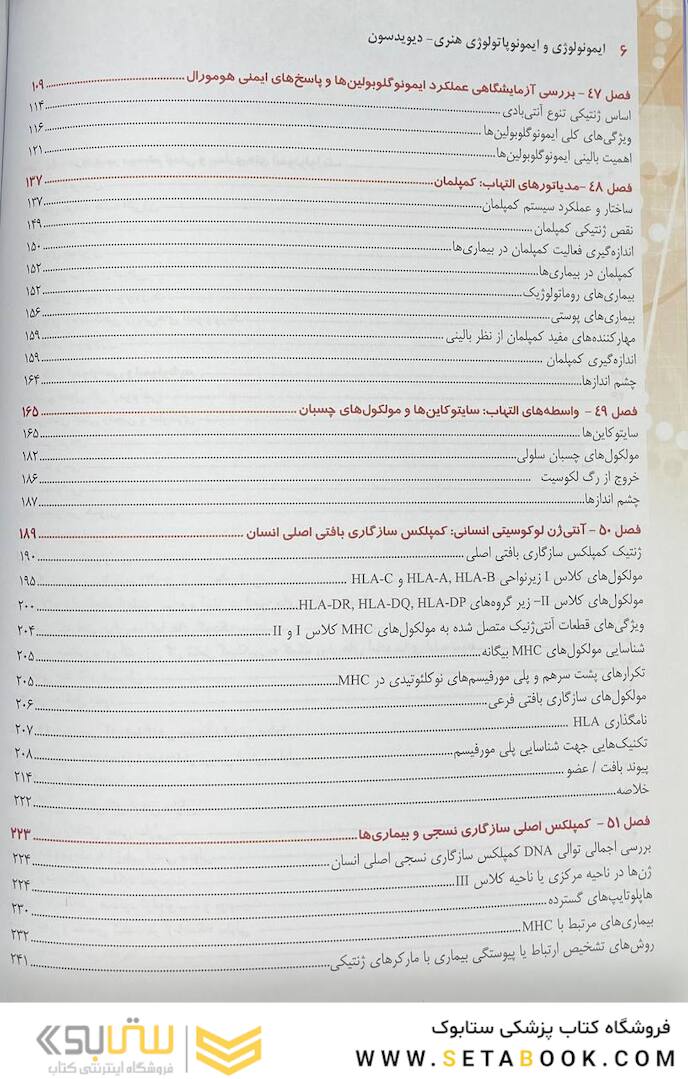 ۶ ایمونولوژی و ایمونوپاتولوژی هنری- دیویدسون
فصل ۴۷ - بررسی آزمایشگاهی عملکرد ایمونوگلوبولین‌ها و پاسخ‌های ایمنی هومورال ........ ۱۰۹
اساس ژنتیکی تنوع آنتی‌بادی ........ ۱۱۴
ویژگی‌های کلی ایمونوگلوبولین‌ها ........ ۱۱۶
اهمیت بالینی ایمونوگلوبولین‌ها ........ ۱۲۱
فصل ۴۸ -مدیاتورهای التهاب: کمپلمان ........ ۱۳۷
ساختار و عملکرد سیستم کمپلمان ........ ۱۳۷
نقص ژنتیکی کمپلمان ........ ۱۴۹
اندازه‌گیری فعالیت کمپلمان در بیماری‌ها ........ ۱۵۰
کمپلمان در بیماری‌ها ........ ۱۵۲
بیماری‌های روماتولوژیک ........ ۱۵۲
بیماری‌های پوستی ........ ۱۵۶
مهارکننده‌های مفید کمپلمان از نظر بالینی ........ ۱۵۹
اندازه‌گیری کمپلمان ........ ۱۵۹
چشم اندازها ........ ۱۶۴
فصل ۴۹ - واسطه‌های التهاب: سایتوکاین‌ها و مولکول‌های چسبان ........ ۱۶۵
سایتوکاین‌ها ........ ۱۶۵
مولکول‌های چسبان سلولی ........ ۱۸۲
خروج از رگ لکوسیت ........ ۱۸۶
چشم اندازها ........ ۱۸۷
فصل ۵۰ - آنتی‌ژن لوکوسیتی انسانی: کمپلکس سازگاری بافتی اصلی انسان ........ ۱۸۹
ژنتیک کمپلکس سازگاری بافتی اصلی ........ ۱۹۰
مولکول‌های کلاس I زیرنواحی HLA-A, HLA-B و HLA-C ........ ۱۹۵
مولکول‌های کلاس II- زیر گروه‌های HLA-DR, HLA-DQ, HLA-DP ........ ۲۰۰
ویژگی‌های قطعات آنتی‌ژنیک متصل شده به مولکول‌های MHC کلاس I و II ........ ۲۰۴
شناسایی مولکول‌های MHC بیگانه ........ ۲۰۵
تکرارهای پشت سرهم و پلی مورفیسم‌های نوکلئوتیدی در MHC ........ ۲۰۵
مولکول‌های سازگاری بافتی فرعی ........ ۲۰۶
نامگذاری HLA ........ ۲۰۷
تکنیک‌هایی جهت شناسایی پلی مورفیسم ........ ۲۰۸
پیوند بافت / عضو ........ ۲۱۴
خلاصه ........ ۲۲۲
فصل ۵۱ - کمپلکس اصلی سازگاری نسجی و بیماری‌ها ........ ۲۲۳
بررسی اجمالی توالی DNA کمپلکس سازگاری نسجی اصلی انسان ........ ۲۲۴
ژن‌ها در ناحیه مرکزی یا ناحیه کلاس III ........ ۲۲۴
هاپلوتایپ‌های گسترده ........ ۲۳۰
بیماری‌های مرتبط با MHC ........ ۲۳۲
روش‌های تشخیص ارتباط یا پیوستگی بیماری با مارکرهای ژنتیکی ........ ۲۴۱
فروشگاه کتاب پزشکی ستابوک
WWW.SETABOOK.COM
ستابوک
فروشگاه اینترنتی کتاب